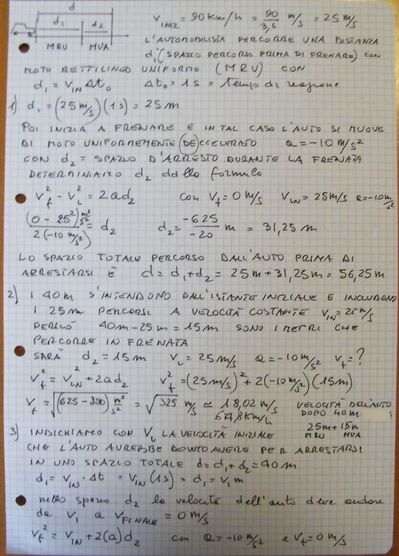 d
d₁ d₂
MRU MVA
V INIZ = 90 Km/h = 90/3,6 m/s = 25 m/s
L'AUTOMOBILISTA PERCORRE UNA DISTANZA
d₁ (SPAZIO PERCORSO PRIMA DI FRENARE) CON
MOTO RETTILINEO
UNIFORME (MRU) CON
d₁ = V IN Δt₀ Δt₀ = 1s = tempo di reazione
1) d₁ = (25 m/s)(1s) = 25 m
POI INIZIA A FRENARE E IN TAL CASO L'AUTO SI MUOVE
DI MOTO UNIFORMEMENTE (DE)CCELERATO a = -10 m/s²
CON d₂ = SPAZIO D'ARRESTO DURANTE LA FRENATA
DETERMINIAMO d₂ dalla formula
V²f - V²i = 2ad₂ con Vf = 0 m/s V IN = 25 m/s a = -10 m/s²
(0 - 25²) m²/s² / 2(-10 m/s²) = d₂ d₂ = -625/-20 m = 31,25 m
LO SPAZIO TOTALE PERCORSO DALL'AUTO PRIMA DI
ARRESTARSI È d = d₁ + d₂ = 25 m + 31,25 m = 56,25 m
2) I 40 m S'INTENDONO DALL'ISTANTE INIZIALE E INCLUDONO
I 25 m PERCORSI A VELOCITÀ COSTANTE V IN = 25 m/s
PERCIÒ 40m - 25m = 15 m SONO I METRI CHE
PERCORRE IN FRENATA
SARÀ d₂ = 15 m Vi = 25 m/s a = -10 m/s² Vf = ?
V²f = V²IN + 2ad₂ V²f = (25 m/s)² + 2(-10 m/s²)(15 m)
Vf = √(625 - 300) m²/s² = √325 m/s ≃ 18,02 m/s VELOCITÀ DELL'AUTO
64,8 km/h DOPO 40 m
25m + 15m
MRU MVA
3) INDICHIAMO CON Vi LA VELOCITÀ INIZIALE
CHE L'AUTO AVREBBE DOVUTO AVERE PER ARRESTARSI
IN UNO SPAZIO TOTALE d = d₁ + d₂ = 40 m
d₁ = V IN · Δt = V IN (1s) = d₁ = Vi m
nello spazio d₂ la velocità dell'auto deve andare
da Vi a V FINALE = 0 m/s
V²f = V IN + 2(a)d₂ con a = -10 m/s² e Vf = 0 m/s